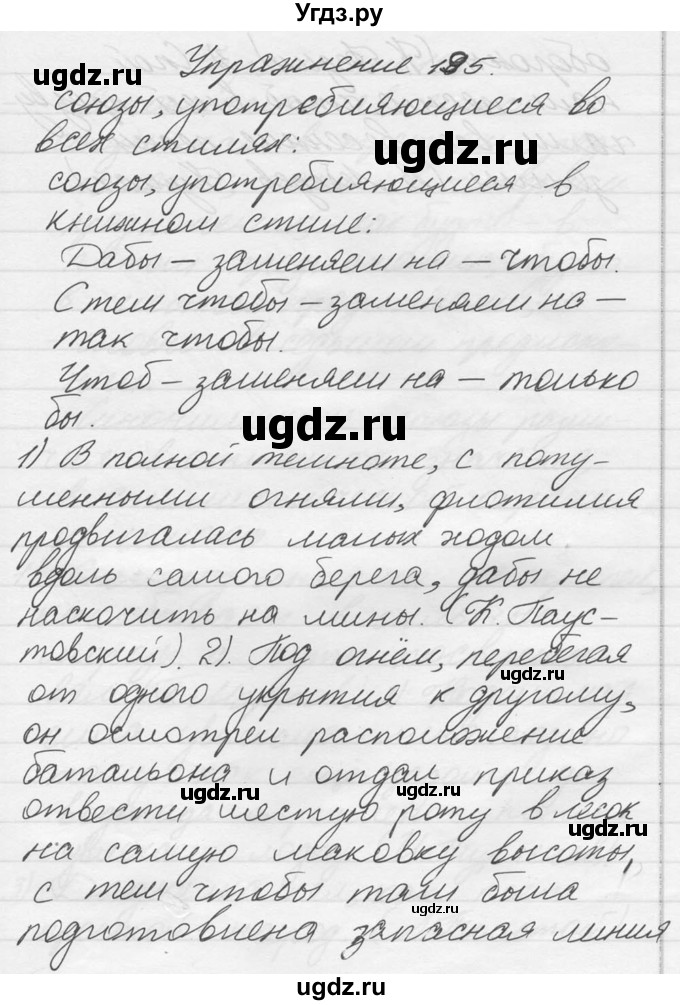 Угдз.ру
Упражнение 195.
союзы, употребляющиеся во
всех стилях:
ugdz.ru
союзы, употребляющиеся в
книжном стиле:
Дабы – заменяем на – чтобы.
С тем чтобы – заменяем на –
так чтобы.
Чтоб – заменяем на – только
бы.
ugdz.ru
1) В полной темноте, с поту-
шенными огнями, флотилия
продвигалась малых ходом
вдоль самого берега, дабы не
наскочить на мины. (К. Паус-
товский). 2). Под огнём, перебегая
ugdz.ru
от одного укрытия к другому,
он осмотрел расположение
батальона и отдал приказ
ugdz.ru
ugdz.ru
отвести шестую роту в лесок
ugdz.ru
на самую маковку высоты,
с тем чтобы там была
ugdz.ru
подготовлена запасная линия
ugdz.ru